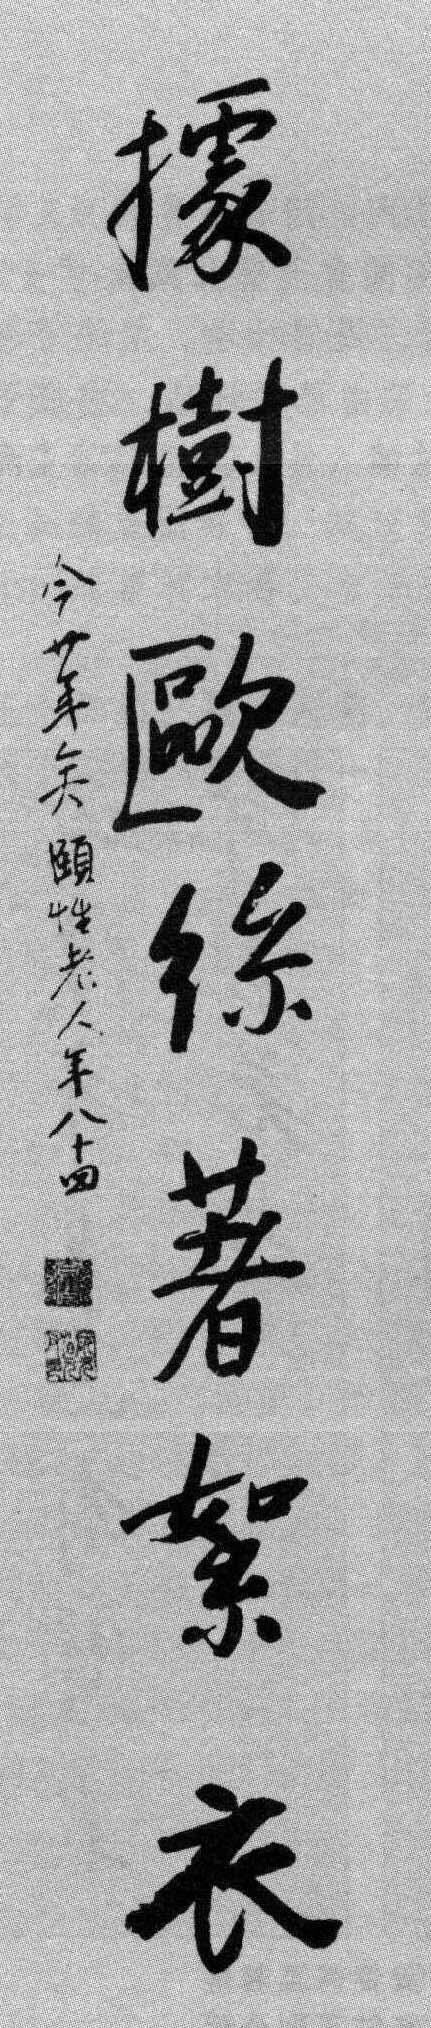 據樹歐絲著絮衣
今廿年矣頤性老人年八十四